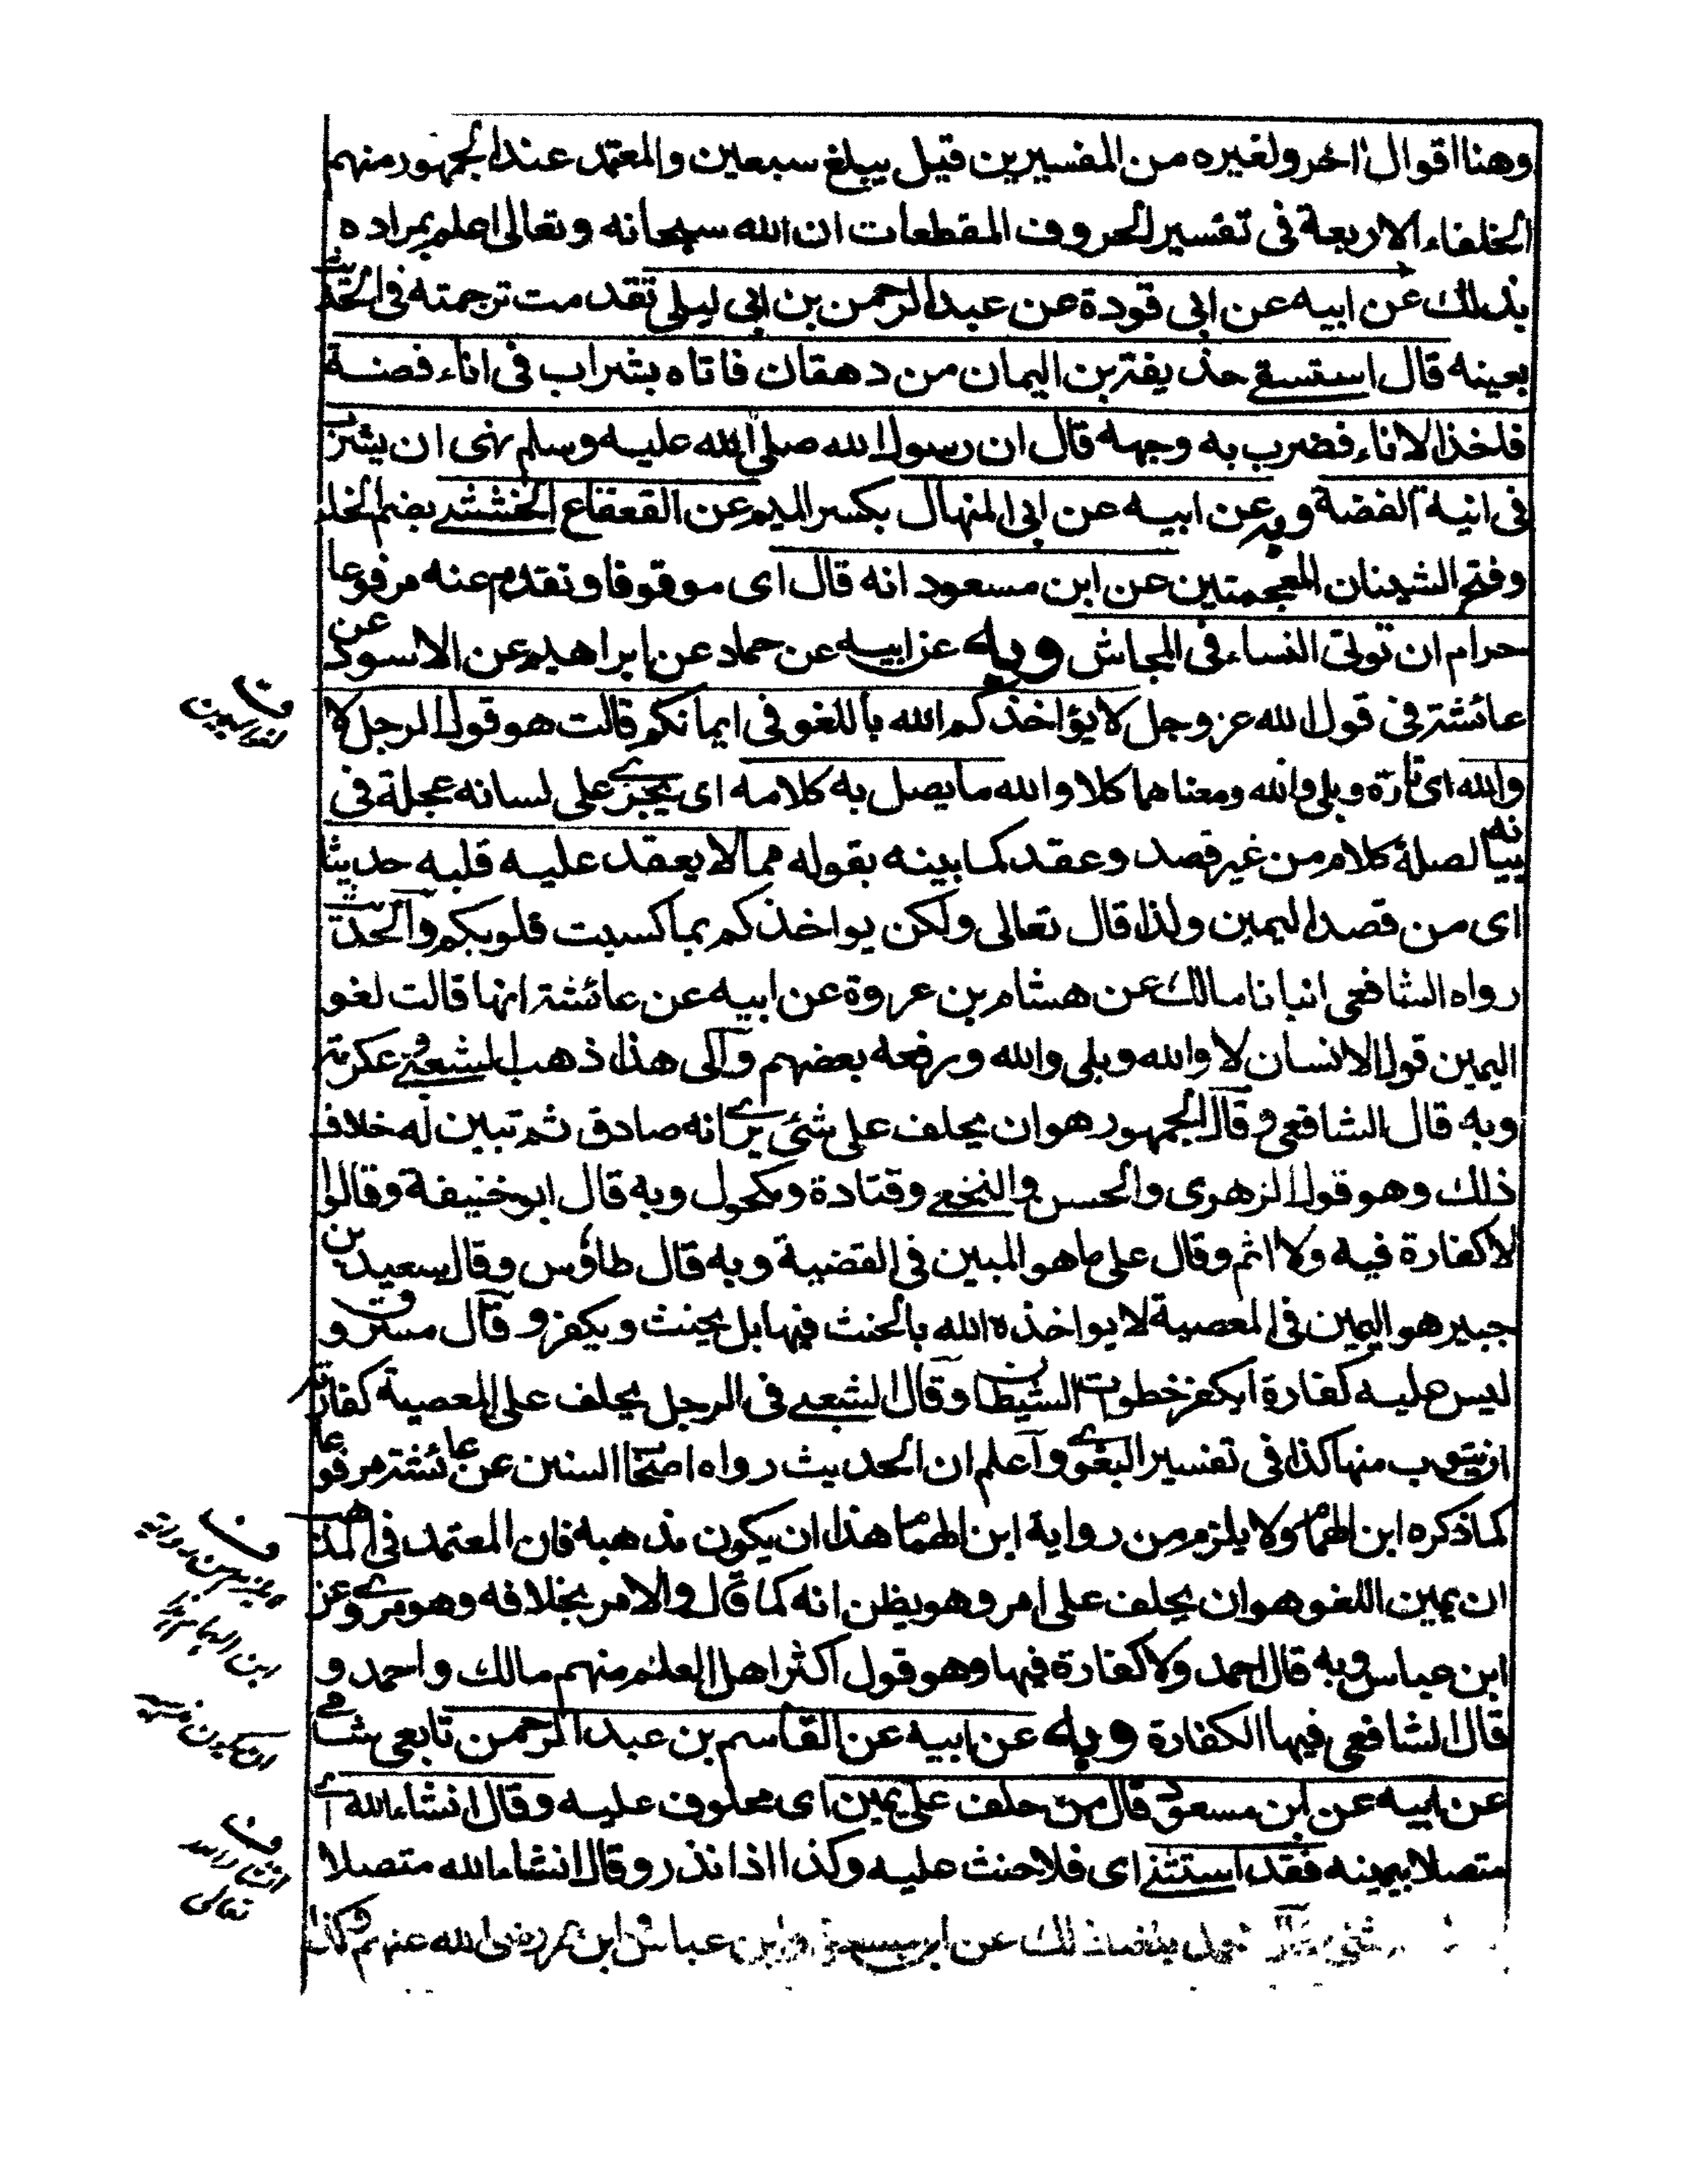 وهنا اقوال اخر ولغيره من المفسيرين قيل يبلغ سبعين والمعتمد عند الجمهور منهم
الخلفاء الاربعة فى تفسير الحروف المقطعات ان الله سبحانه وتعالى اعلم بمراده
بذلك عن ابيه عن ابى قودة عن عبد الرحمن بن ابى ليلى تقدمت ترجمته فى الحديث
بعينه قال استسقى حذيفة بن اليمان من دهقان فاتاه بشراب فى اناء فضة
فلخذ الاناء فضرب به وجهه قال ان رسول الله صلى الله عليه وسلم نهى ان يشرب
فى انية الفضة وبه عن ابيه عن ابى المنهال بكسر الميم عن القعقاع الخششى بضم الخاء
وفتح الشينان المعجمتين عن ابن مسعود انه قال اى موقوفا وتقدم عنه مرفوعا
حرام ان تولتى النساء فى المجاش وبه عن ابيه عن حماد عن ابراهيم عن الاسود عن
عائشة فى قول الله عز وجل لا يؤاخذكم الله باللغو فى ايمانكم قالت هو قول الرجل لا
والله اى تارة وبلى والله ومعناهما كلا والله ما يصل به كلامه اى يجرى على لسانه عجلة فى
بيانه لصلة كلام من غير قصد وعقد كما بينه بقوله مما لا يعقد عليه قلبه حديثا
اى من قصد اليمين ولذا قال تعالى ولكن يواخذكم بما كسبت قلوبكم والحديث
رواه الشافعى انبانا مالك عن هشام بن عروة عن ابيه عن عائشة انها قالت لغو
اليمين قول الانسان لا والله وبلى والله ورفعه بعضهم والى هذا ذهب الشعبى وعكرمة
وبه قال الشافعى وقال الجمهور هو ان يحلف على شئ يرى انه صادق ثم تبين له خلاف
ذلك وهو قول الزهرى والحسن والنخعى وقتادة ومكحول وبه قال ابو خنيفة وقالوا
لا كفارة فيه ولا اثم وقال على ما هو المبين فى القضية وبه قال طاؤس وقال سعيد بن
جبير هو اليمين فى المعصية لا يواخذه الله بالحنث فيها بل يحنث ويكفر وقال مسروق
ليس عليه كفارة ايكفر خطوت الشيطان وقال الشعبى فى الرجل يحلف على المعصية كفارته
ان يتوب منها كذا فى تفسير البغوى واعلم ان الحديث رواه اصحاب السنن عن عائشة مرفوعا
كما ذكره ابن الهمام ولا يلزم من رواية ابن الهمام هذا ان يكون مذهبه فان المعتمد فى المذهب
ان يمين اللغو هو ان يحلف على امر وهو يظن انه كما قال والامر بخلافه وهو مروى عن
ابن عباس وبه قال احمد ولا كفارة فيها وهو قول اكثر اهل العلم منهم مالك واحمد و
قال الشافعى فيها الكفارة وبه عن ابيه عن القاسم بن عبد الرحمن تابعى شامى
عن ابيه عن ابن مسعود قال من حلف على يمين اى محلوف عليه وقال انشاء الله اى
متصلا بيمينه فقد استثنى اى فلا حنث عليه وكذا اذا نذر وقال انشاء الله متصلا
ذلك عن ابن مسعود وابن عباس وابن عمر رضى الله عنهم وكذا
ف
لغو اليمين
ف
ابن الهمام
ان يكون مذهبه
ف
انشاء الله
تعالى